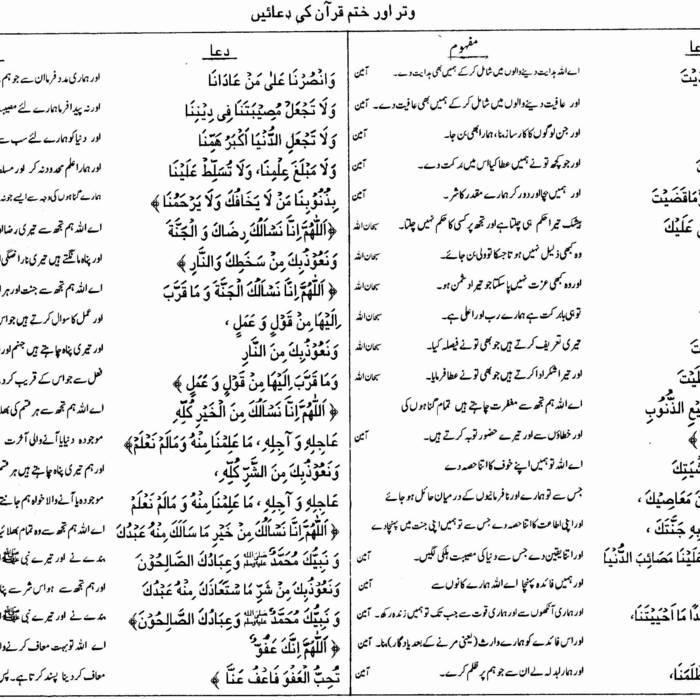 وتر اور ختم قرآن کی دعائیں
عا
مفہوم
یْتَ
اے اللہ ہدایت دینے والوں میں شامل کر کے ہمیں بھی ہدایت دے۔ آمین
اور عافیت دینے والوں میں شامل کر کے ہمیں بھی عافیت دے۔ آمین
اور جن لوگوں کا کارساز بنا، ہمارا بھی بن جا۔ آمین
اور جو کچھ تو نے ہمیں عطا کیا اس میں برکت دے۔ آمین
اور ہمیں بچا اور دور کر ہمارے مقدر کا شر۔ آمین
مَاقَضَيْتَ
بیشک تیرا حکم ہی چلتا ہے اور تجھ پر کسی کا حکم نہیں چلتا۔ سبحان اللہ
عَلَيْكَ
وہ کبھی ذلیل نہیں ہوتا جسکا تو ولی بن جائے۔ سبحان اللہ
اور وہ کبھی عزت نہیں پا سکتا جو تیرا دشمن ہو۔ سبحان اللہ
تو ہی بابرکت ہے ہمارے رب اور اعلی ہے۔ سبحان اللہ
تیری تعریف کرتے ہیں جو بھی تو نے فیصلہ کیا۔ سبحان اللہ
اور تیرا شکر ادا کرتے ہیں جو بھی تو نے عطا فرمایا۔ سبحان اللہ
اے اللہ ہم تجھ سے مغفرت چاہتے ہیں تمام گناہوں کی
الذُّنُوبِ
اور خطاؤں سے اور تیرے حضور توبہ کرتے ہیں۔ آمین
اے اللہ تو ہمیں اپنے خوف کا اتنا حصہ دے
جس سے تو ہمارے اور نافرمانیوں کے درمیان حائل ہو جائے
مَعَاصِيكَ،
اور اپنی اطاعت کا اتنا حصہ دے جس سے تو ہمیں اپنی جنت میں پہنچا دے
جَنَّتَكَ،
اور اتنا یقین دے جس سے دنیا کی مصیبت ہلکی لگیں۔ آمین
عَلَيْنَا مَصَائِبَ الدُّنْيَا
اور ہمیں فائدہ پہنچا اے اللہ ہمارے کانوں سے آمین
اور ہماری آنکھوں سے اور ہماری قوت سے جب تک تو ہمیں زندہ رکھ۔ آمین
مَا اَحْيَيْتَنَا،
اور اس فائدے کو ہمارے وارث (یعنی مرنے کے بعد یادگار) بنا۔ آمین
اور ہمارا بدلہ لے ان سے جو ہم پر ظلم کرے۔ آمین
دعا
وَانْصُرْنَا عَلٰى مَنْ عَادَانَا
اور ہماری مدد فرما ان سے جو ہم
وَلَا تَجْعَلْ مُصِيْبَتَنَا فِى دِيْنِنَا
اور نہ پیدا فرما ہمارے لئے
وَلَا تَجْعَلِ الدُّنْيَا اَكْبَرَ هَمِّنَا
اور دنیا کو ہمارے لئے سب سے
وَلَا مَبْلَغَ عِلْمِنَا، وَلَا تُسَلِّطْ عَلَيْنَا
اور ہمارا علم محدود نہ کر اور
بِذُنُوْبِنَا مَنْ لَا يَخَافُكَ وَلَا يَرْحَمُنَا ﴾
ہمارے گناہوں کی وجہ سے ایسے جو نہ
﴿اَللّٰهُمَّ اِنَّا نَسْاَلُكَ رِضَاكَ وَ الْجَنَّةَ
اے اللہ ہم تجھ سے تیری رضا اور
وَنَعُوْذُبِكَ مِنْ سَخَطِكَ وَالنَّارِ ﴾
اور پناہ مانگتے ہیں تیری ناراضگی
﴿ اَللّٰهُمَّ اِنَّا نَسْاَلُكَ الْجَنَّةَ وَ مَا قَرَّبَ
اے اللہ ہم تجھ سے جنت اور ہر
اِلَيْهَا مِنْ قَوْلٍ وَ عَمَلٍ ،
اور عمل کا سوال کرتے ہیں جو
وَنَعُوْذُبِكَ مِنَ النَّارِ
اور تیری پناہ چاہتے ہیں جہنم اور
وَمَا قَرَّبَ اِلَيْهَا مِنْ قَوْلٍ وَ عَمَلٍ ﴾
فعل سے جو اس کے قریب کر دے
﴿ اَللّٰهُمَّ اِنَّا نَسْاَلُكَ مِنَ الْخَيْرِ كُلِّهٖ
اے اللہ ہم تجھ سے ہر قسم کی
عَاجِلِهٖ وَ اٰجِلِهٖ ، مَا عَلِمْنَا مِنْهُ وَمَالَمْ نَعْلَمْ﴾
موجودہ دنیا یا آنے والی آخرت
وَنَعُوْذُبِكَ مِنَ الشَّرِّ كُلِّهٖ ،
اور ہم تیری پناہ چاہتے ہیں ہر
عَاجِلِهٖ وَ اٰجِلِهٖ ، مَا عَلِمْنَا مِنْهُ وَ مَالَمْ نَعْلَمْ
موجودہ یا آنے والا خواہ ہم جانتے
﴿ اَللّٰهُمَّ اِنَّا نَسْاَلُكَ مِنْ خَيْرِ مَا سَاَلَكَ مِنْهُ عَبْدُكَ
اے اللہ ہم تجھ سے وہ تمام بھلائی
وَ نَبِيُّكَ مُحَمَّدٌ ﷺ وَعِبَادُكَ الصَّالِحُوْنَ
بندے نے اور تیرے نبی ﷺ
وَنَعُوْذُبِكَ مِنْ شَرِّ مَا سْتَعَاذَكَ مِنْهُ عَبْدُكَ
اور ہم تجھ سے ہو اس شر سے
وَ نَبِيُّكَ مُحَمَّدٌ ﷺ وَعِبَادُكَ الصَّالِحُوْنَ﴾
بندے نے اور تیرے نبی ﷺ
﴿ اَللّٰهُمَّ اِنَّكَ عَفُوٌّ
اے اللہ تو بہت معاف کرنے
تُحِبُّ الْعَفْوَ فَاعْفُ عَنَّا ﴾
معاف کر دینا پسند کرتا ہے۔ پس